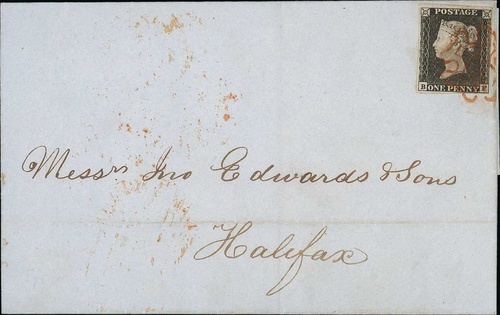 POSTAGE
ONE PENNY
Messrs Jno Edwards & Sons
Halifax